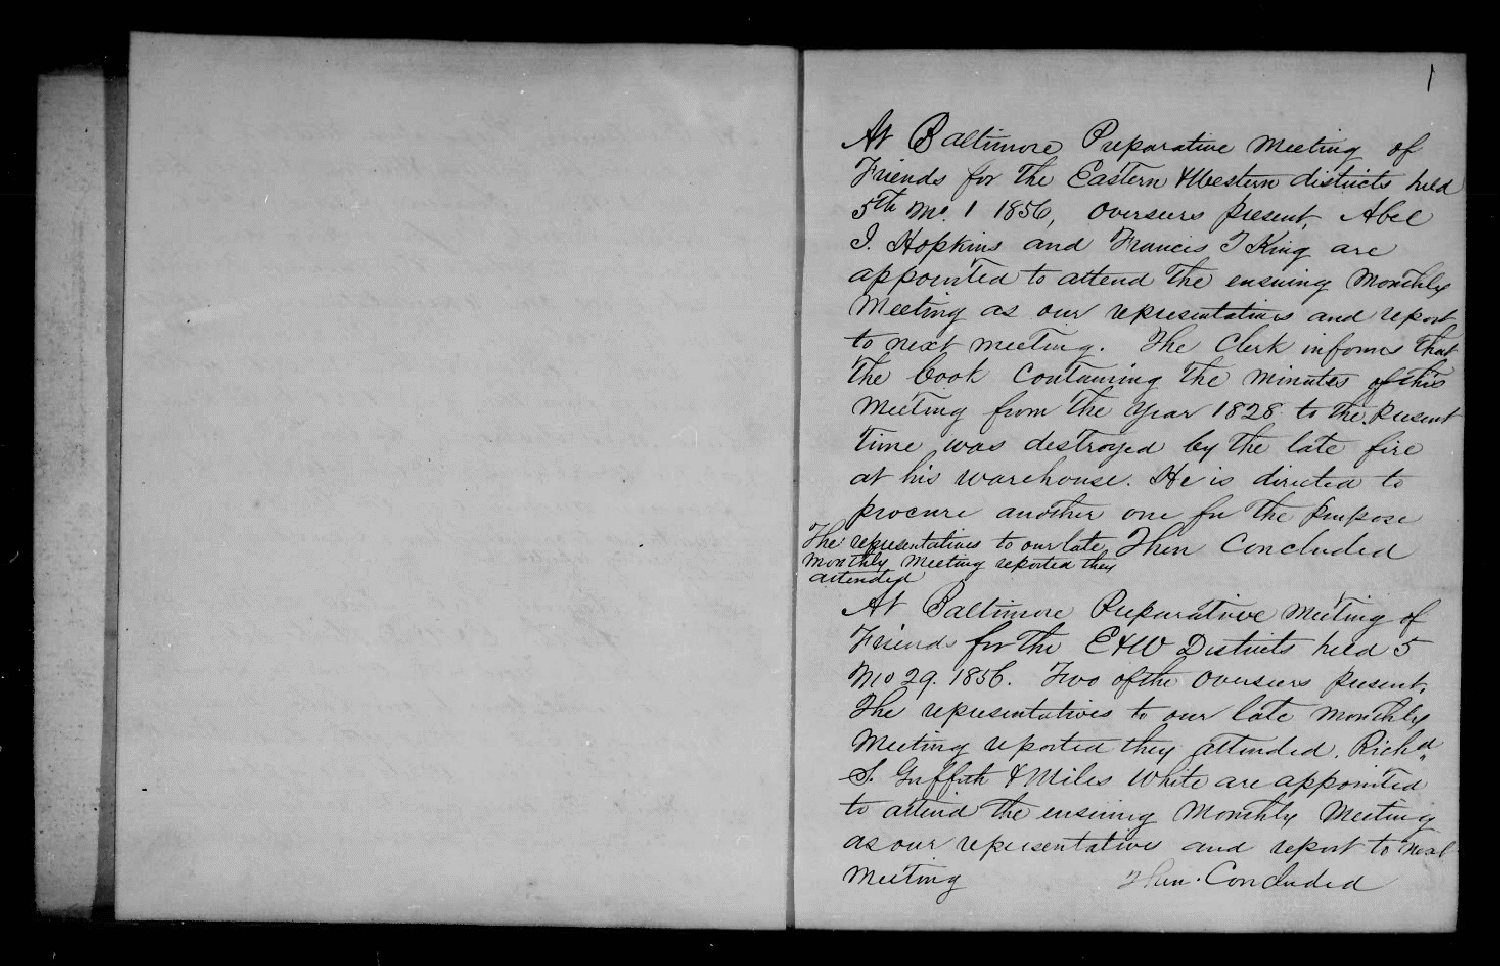 1
At Baltimore Preparative Meeting of
Friends for the Eastern & Western districts held
5th Mo. 1 1856, Overseers present, Abel
J. Hopkins and Francis T King are
appointed to attend the ensuing Monthly
Meeting as our representatives and report
to next meeting. The Clerk informs that
the book containing the minutes of this
Meeting from the Year 1828 to the present
time was destroyed by the late fire
at his warehouse. He is directed to
procure another one for the purpose
The representatives to our late Then Concluded
Monthly Meeting reported they
attended
At Baltimore Preparative Meeting of
Friends for the E & W Districts held 5
Mo 29. 1856. Two of the Overseers present.
The representatives to our late Monthly
Meeting reported they attended. Richd
S. Griffith & Miles White are appointed
to attend the ensuing Monthly Meeting
as our representatives and report to next
Meeting Then Concluded